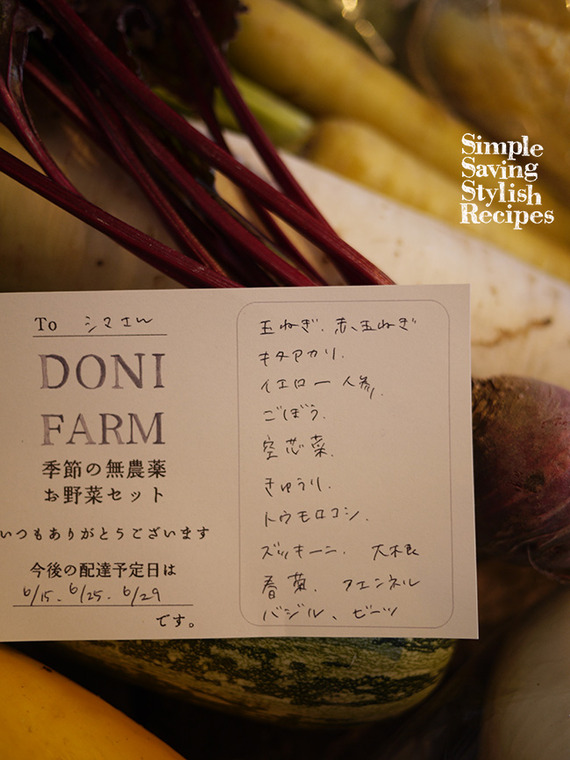 Simple
Saving
Stylish
Recipes
To シマさん
DONI
FARM
季節の無農薬
お野菜セット
いつもありがとうございます
今後の配達予定日は
6/15. 6/25. 6/29
です。
玉ねぎ. 赤玉ねぎ
キタアカリ.
イエロー人参.
ごぼう.
空芯菜.
きゅうり.
トウモロコシ.
ズッキーニ. 大根
春菊. フェンネル
バジル、ビーツ